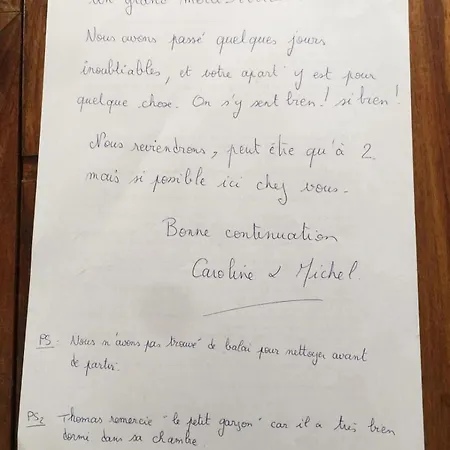 un grand merci
Nous avons passé quelques jours
inoubliables, et votre apart y est pour
quelque chose. On s'y sent bien! si bien!
Nous reviendrons, peut être qu'à 2
mais si possible ici chez vous.
Bonne continuation
Caroline & Michel.
PS: Nous n'avons pas trouvé de balai pour nettoyer avant
de partir.
PS2 Thomas remercie "le petit garçon" car il a très bien
dormi dans sa chambre.